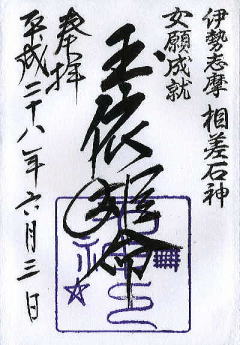 伊勢志摩 相差石神
女願成就
玉依姫命
奉拝
平成二十八年六月三日